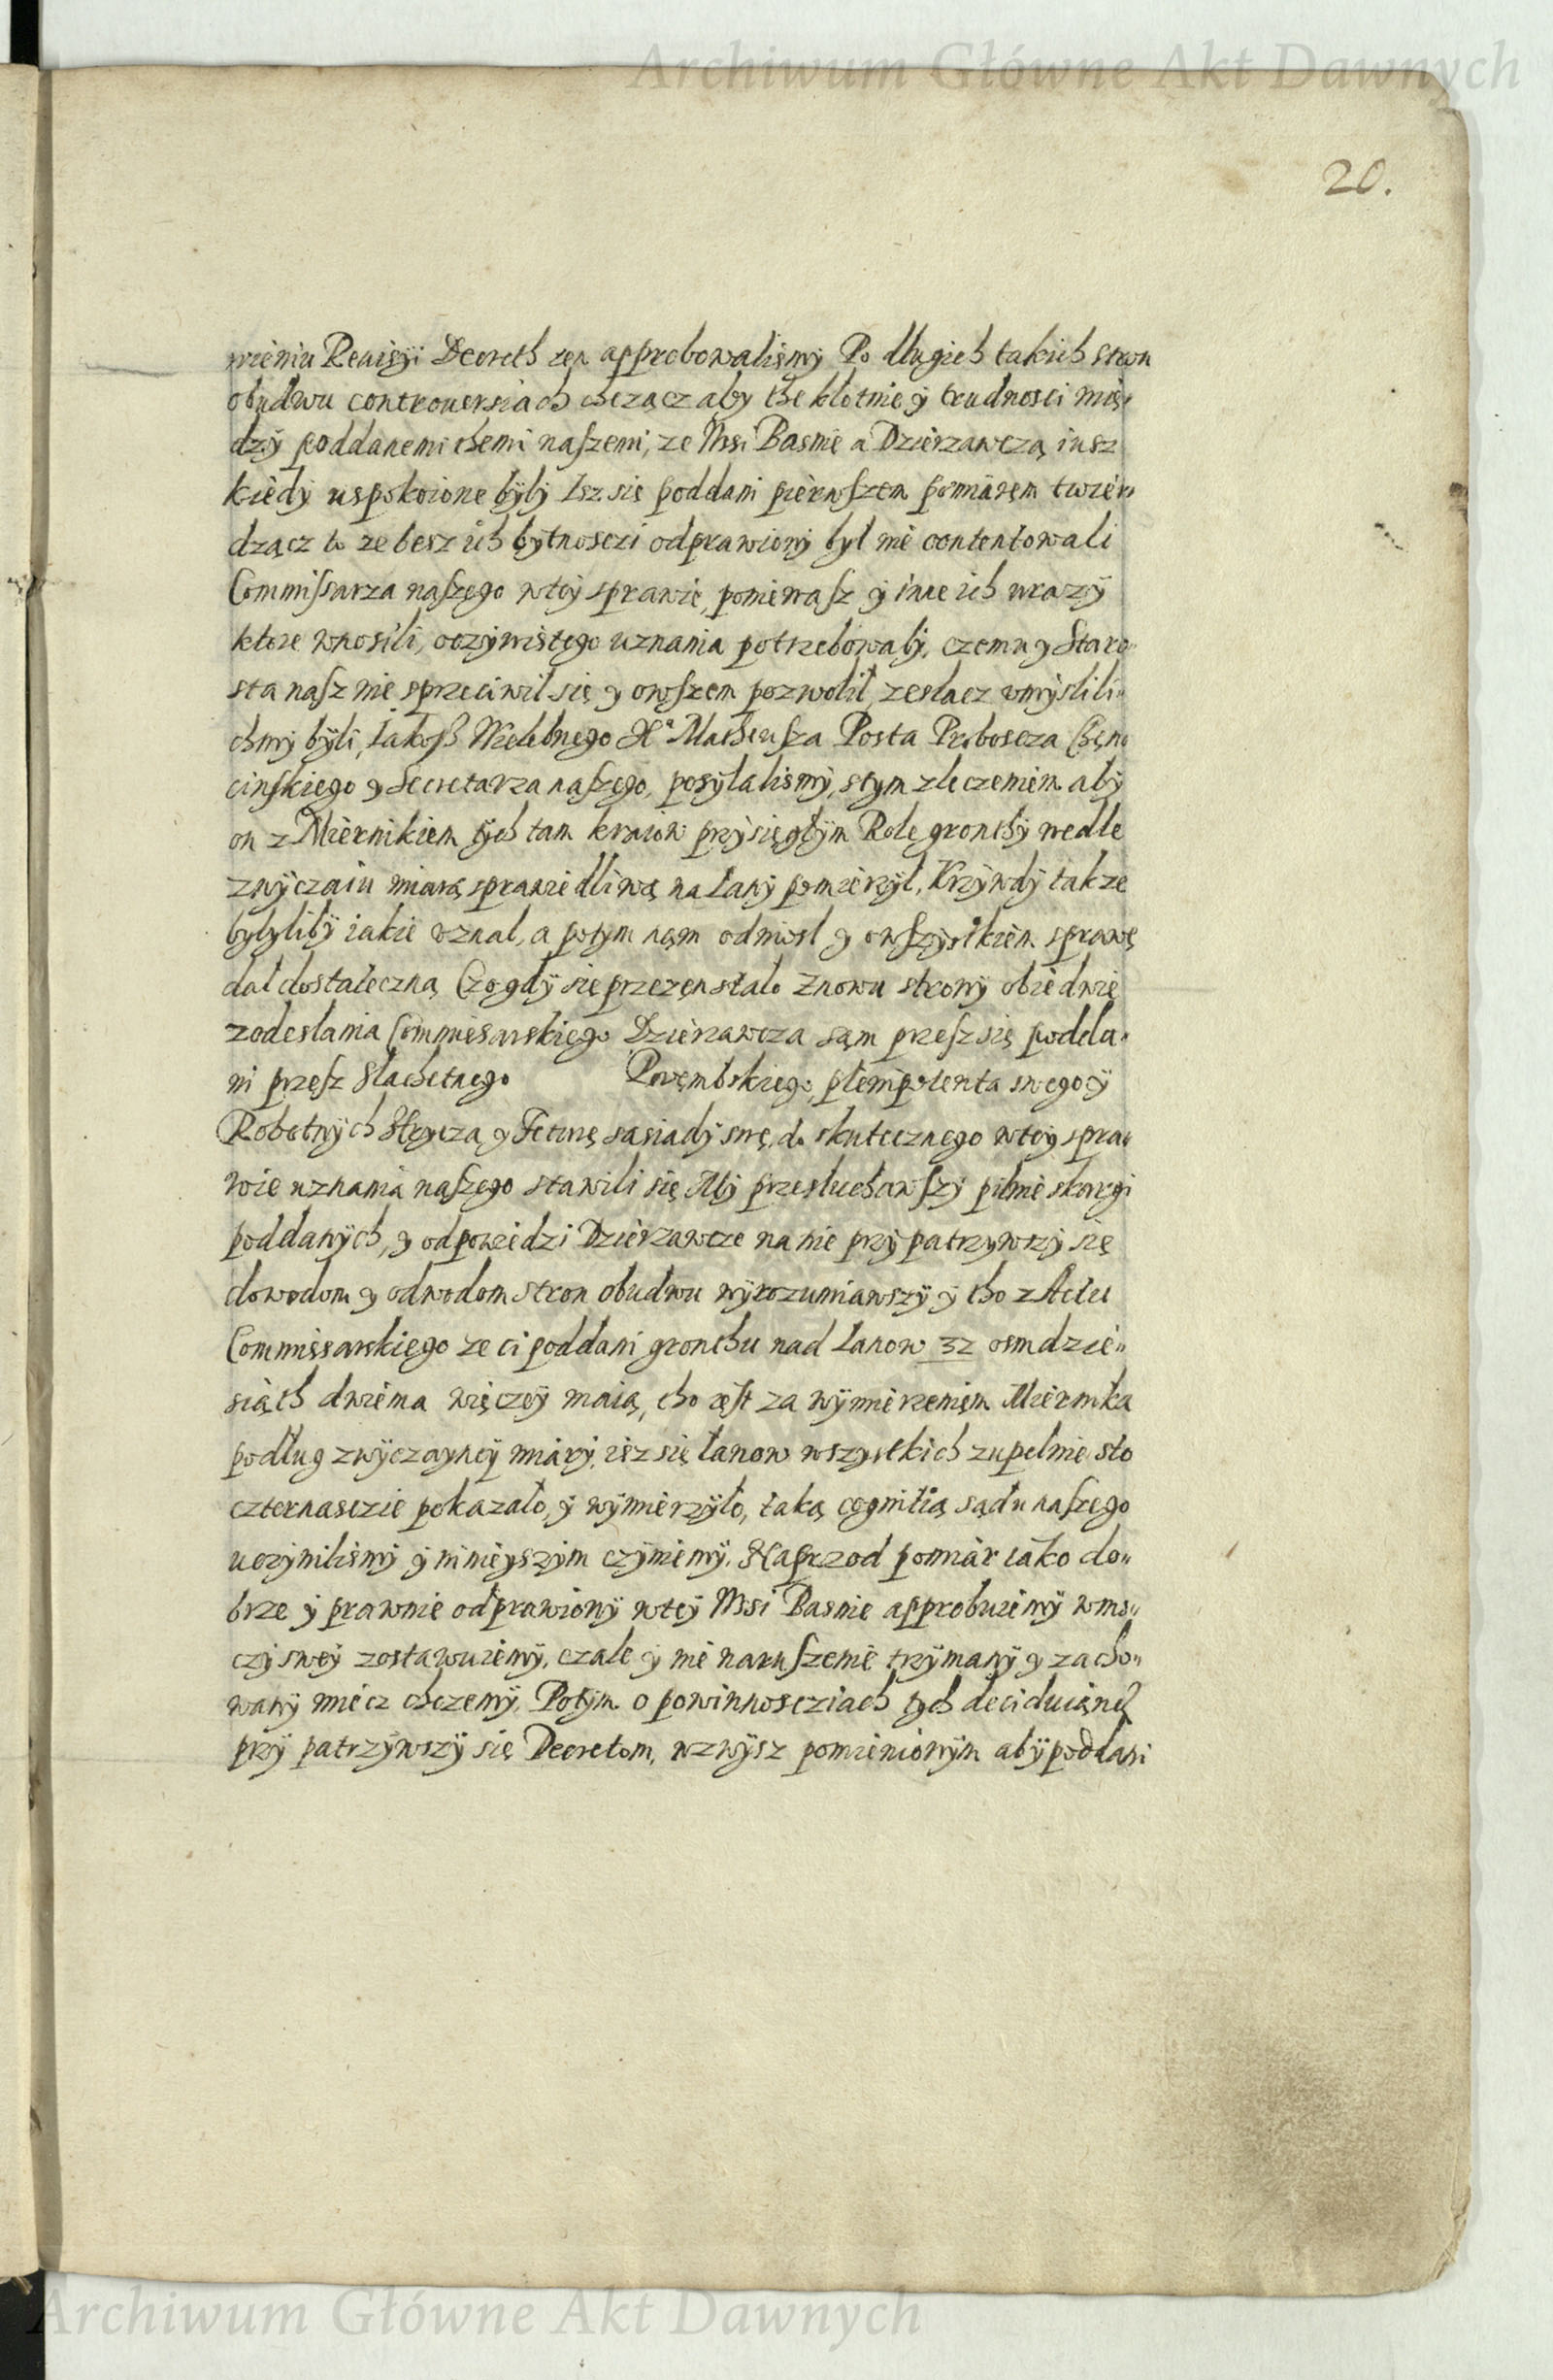 Archiwum Główne Akt Dawnych
20.
wieniu Rewisÿi Decreth ten approbowalismÿ Po długich takich stron
obudwu controuersiach chczącz aby the kłotnie ÿ trudnosci mię„
dzÿ poddanemi themi naszemi, ze Wsi Basnie a Dzierzawczą iusz
kiedÿ uspokoione bÿlÿ Isz się poddani pierwszem pomiarem twier„
dzącz to ze besz ich bÿtnosczi odprawionÿ był nie contentowali
Commissarza naszego wteÿ sprawie, poniewasz ÿ inne ich urazÿ
ktore wnosili, oczÿwistego uznania potrzebowałÿ, czemu ÿ Staro„
sta nasz nie sprzeciwił się ÿ owszem pozwolił, zesłacz umÿslili„
chmÿ bÿli, Iakosz Wielebnego Xa Matheusza Posta Proboscza Chęn„
cinskiego ÿ Secretarza naszego, posÿlalismÿ, stym zleczeniem abÿ
on z Miernikiem tÿch tam kraiow przÿsięgłÿm Role gronthÿ wedle
zwÿczaiu miarą sprawiedliwą na Łanÿ pomierzÿł, Krzÿwdÿ takze
bÿłÿlibÿ iakie uznał, a potym nąm odniosł ÿ owszÿstkiem sprawę
dał dostateczną Czo gdÿ się przezęn stało Znowu stronÿ obiedwie
zodesłania Commissarskiego Dzierzawcza sąm przesz się podda„
ni przesz Slachetnego Porembskiego, plenipotenta swego ÿ
Robotnÿch sąsiadÿ swe, do skutecznego wteÿ spra„
wie uznania naszego stawili się Mÿ przesłuchawszÿ pilnie skargi
poddanÿch, ÿ odpowiedzi Dzierzawcze na nie przÿpatrzÿwszÿ się
dowodom ÿ odwodom stron obudwu wÿrozumiawszÿ ÿ tho z Actu
Commissarskiego ze ci poddani gronthu nad Łanow 32 osmdzie„
siąth dwiema więczeÿ maią, tho iest za wÿmierzeniem Miernika
podług zwÿczaÿneÿ miarÿ, isz się łanow wszystkich zupełnie sto
czternasczie pokazało, ÿ wÿmierzÿło, taką cognitią sądu naszego
uczÿnilismÿ ÿ ninieÿszÿm czÿniemÿ. Naprzod pomiar iako do„
brze ÿ prawnie odprawionÿ wteÿ Wsi Basnie approbuiemÿ wmo„
czÿ sweÿ zostawuiemÿ, czale ÿ nie naruszenie trzÿmanÿ ÿ zacho„
wanÿ miecz chczemÿ, Potÿm o powinnoscziach tÿch deciduiącz
przÿ patrzÿwszÿ się Decretom, wzwÿsz pomienionÿm abÿ poddani
Archiwum Główne Akt Dawnych